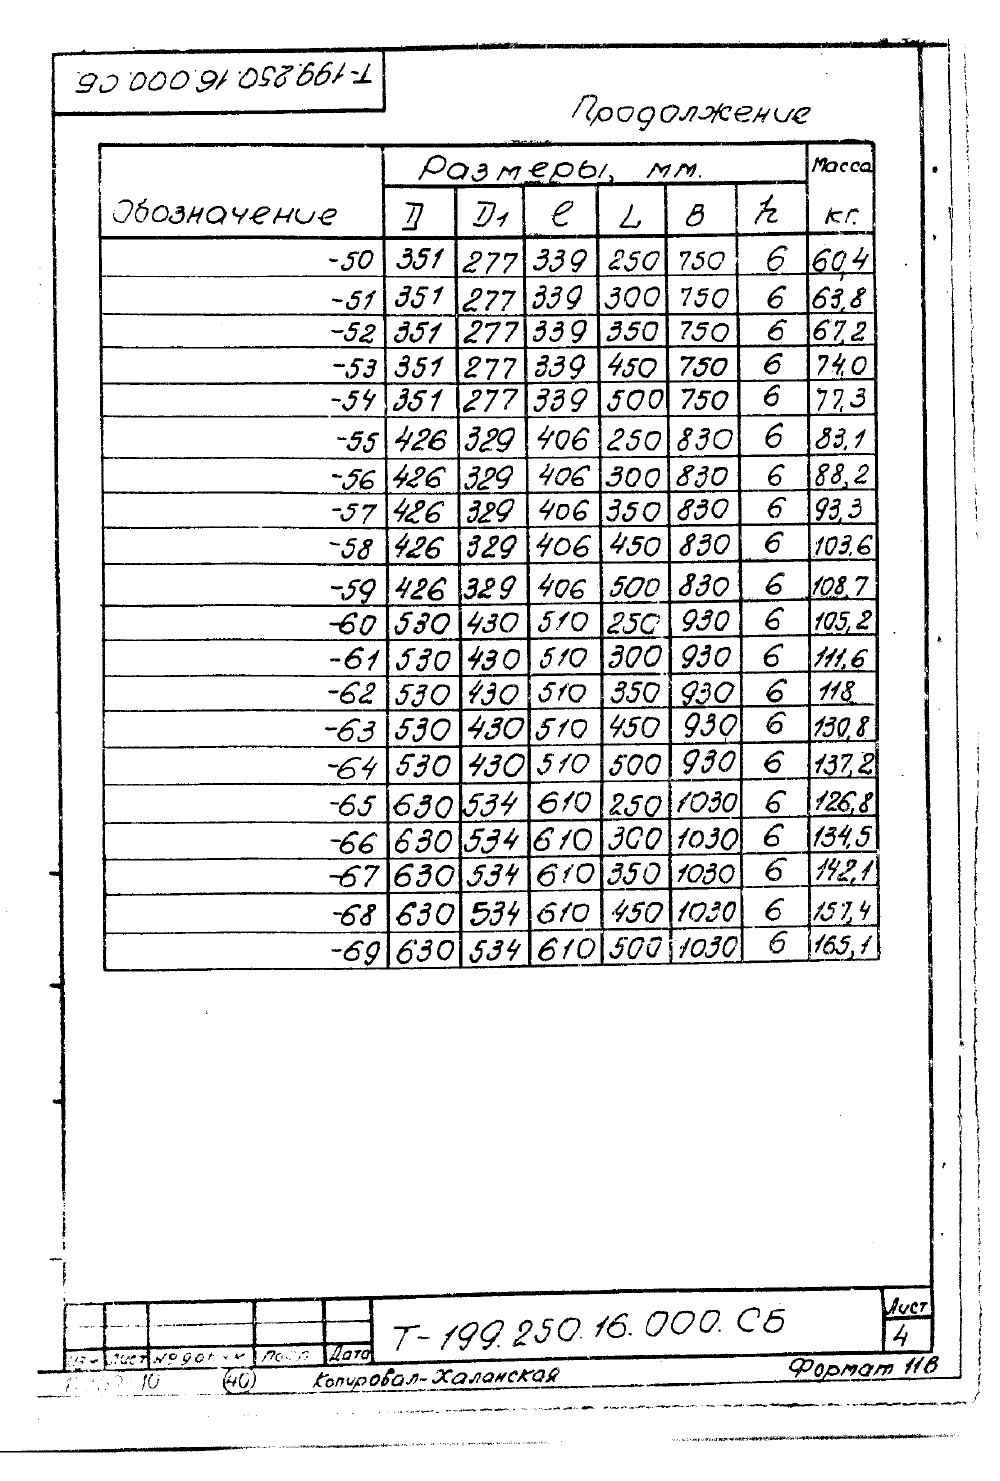 Т-199.250.16.000.СБ
Продолжение
Обозначение Размеры, мм. Масса кг.
D D1 ℓ L B h
-50 351 277 339 250 750 6 60,4
-51 351 277 339 300 750 6 63,8
-52 351 277 339 350 750 6 67,2
-53 351 277 339 450 750 6 74,0
-54 351 277 339 500 750 6 77,3
-55 426 329 406 250 830 6 83,1
-56 426 329 406 300 830 6 88,2
-57 426 329 406 350 830 6 93,3
-58 426 329 406 450 830 6 103,6
-59 426 329 406 500 830 6 108,7
-60 530 430 510 250 930 6 105,2
-61 530 430 510 300 930 6 111,6
-62 530 430 510 350 930 6 118
-63 530 430 510 450 930 6 130,8
-64 530 430 510 500 930 6 137,2
-65 630 534 610 250 1030 6 126,8
-66 630 534 610 300 1030 6 134,5
-67 630 534 610 350 1030 6 142,1
-68 630 534 610 450 1030 6 157,4
-69 630 534 610 500 1030 6 165,1
Т-199.250.16.000.СБ
Лист
4
Лист Дата
10 (40) Копировал-Халанская Формат 11В